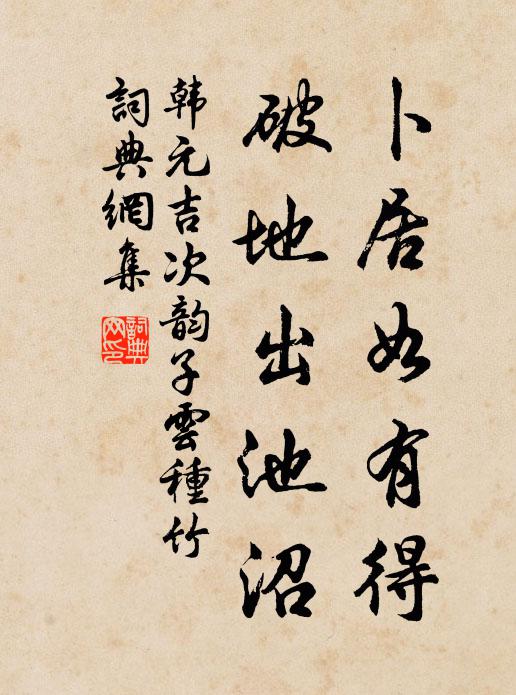 卜居如有得
破地出池沼
韩元吉次韵子雲種竹
詞典網集
詞典網印